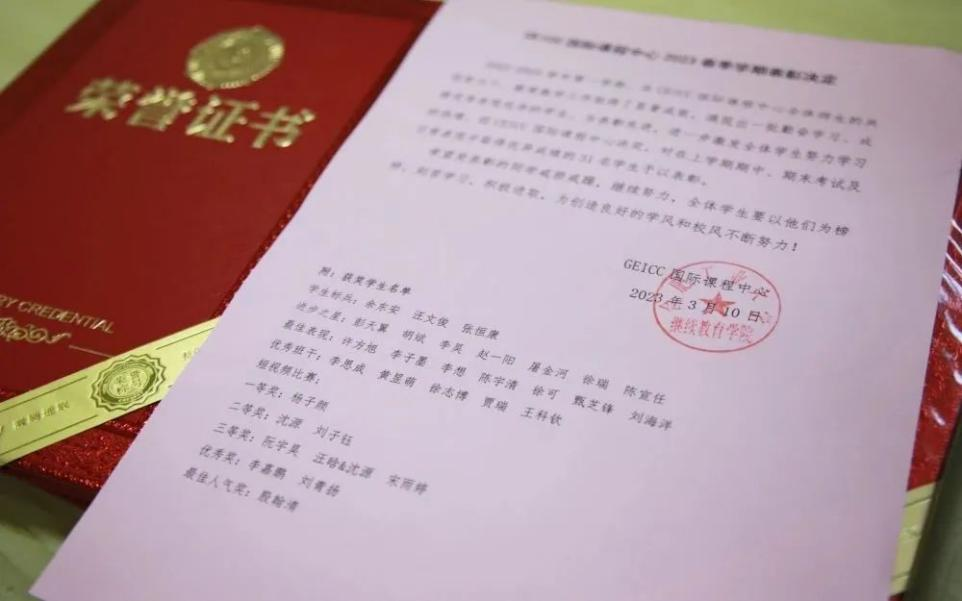 荣誉证书
RY CREDENTIAL
GEICC 国际课程中心 2023 春季学期表彰决定
国际课程中心全体师生的共
学习、成
进一步激发全体学生努力学习
国际课程中心决定，对在上学期期中、期末考试及
日常表现中取得优异成绩的 31 名学生予以表彰。
希望受表彰的同学戒骄戒躁，继续努力，全体学生要以他们为榜
样，刻苦学习，积极进取，为创造良好的学风和校风不断努力！
GEICC 国际课程中心
2023 年 3 月 10 日
继续教育学院
附：获奖学生名单
学生标兵：余东安 汪文俊 张恒康
进步之星：彭天翼 胡斌 李昊 赵一阳 屠金河 徐瑞 陈宣任
最佳表现：许方旭 李子墨 李想 陈宇清 徐可 甄芝锋 刘海洋
优秀班干：李恩成 黄昱萌 徐志博 贾瑞 王科钦
短视频比赛：
一等奖：杨子颜
二等奖：沈源 刘子钰
三等奖：阮宇昊 汪晗&沈源 宋雨婷
优秀奖：李嘉鹏 刘青扬
最佳人气奖：殷翰清